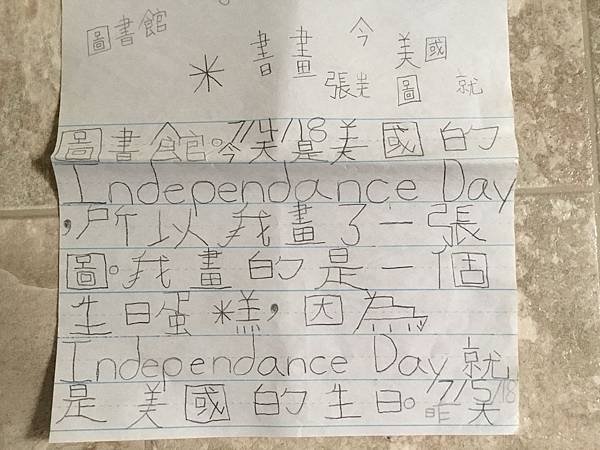 圖書館
米 書畫 今 美國
張 圭 圖 就
圖書館。今天是美國的
7/4/18
Independance Day
,所以我畫了一張
圖。我畫的是一個
生日蛋糕,因為
Independance Day 就
是美國的生日。昨天
7/5/18